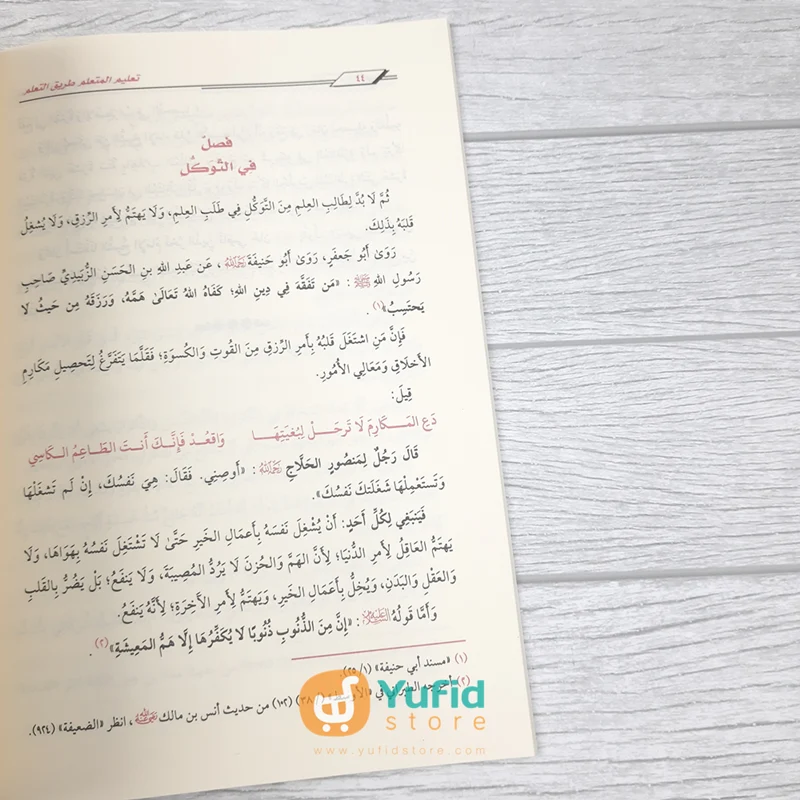 تعليم المتعلم طريق التعلم
٤٤
فَصلٌ
فِي التَّوَكُّلِ
ثُمَّ لَا بُدَّ لِطَالِبِ العِلمِ مِنَ التَّوَكُّلِ فِي طَلَبِ العِلمِ، وَلَا يَهتَمُّ لِأَمرِ الرِّزقِ، وَلَا يُشْغِلُ
قَلبَهُ بِذَلِكَ.
رَوَىٰ أَبُو جَعفَرٍ، رَوَىٰ أَبُو حَنِيفَةَ رَحِمَهُ اللهُ، عَن عَبدِ اللهِ بنِ الحَسَنِ الزُّبَيدِيِّ صَاحِبِ
رَسُولِ اللهِ ﷺ: «مَن تَفَقَّهَ فِي دِينِ اللهِ؛ كَفَاهُ اللهُ تَعَالَىٰ هَمَّهُ، وَرَزَقَهُ مِن حَيثُ لَا
يَحتَسِبُ»(١).
فَإِنَّ مَنِ اشتَغَلَ قَلبُهُ بِأَمرِ الرِّزقِ مِنَ القُوتِ وَالكُسوَةِ؛ فَقَلَّمَا يَتَفَرَّغُ لِتَحصِيلِ مَكَارِمِ
الأَخلَاقِ وَمَعَالِي الأُمُورِ.
قِيلَ:
دَعِ المَكَارِمَ لَا تَرحَلْ لِبُغيَتِهَا وَاقعُدْ فَإِنَّكَ أَنتَ الطَّاعِمُ الكَاسِي
قَالَ رَجُلٌ لِمَنصُورٍ الحَلَّاجِ رَحِمَهُ اللهُ: «أَوصِنِي. فَقَالَ: هِيَ نَفسُكَ، إِنْ لَم تَشغَلْهَا
وَتَستَعمِلْهَا شَغَلَتكَ نَفسُكَ».
فَيَنبَغِي لِكُلِّ أَحَدٍ: أَن يُشْغِلَ نَفسَهُ بِأَعمَالِ الخَيرِ حَتَّىٰ لَا تَشْتَغِلَ نَفسُهُ بِهَوَاهَا، وَلَا
يَهتَمُّ العَاقِلُ لِأَمرِ الدُّنيَا؛ لِأَنَّ الهَمَّ وَالحُزنَ لَا يَرُدُّ المُصِيبَةَ، وَلَا يَنفَعُ؛ بَل يَضُرُّ بِالقَلبِ
وَالعَقْلِ وَالبَدَنِ، وَيُخِلُّ بِأَعمَالِ الخَيرِ، وَيَهتَمُّ لِأَمرِ الآخِرَةِ؛ لِأَنَّهُ يَنفَعُ.
وَأَمَّا قَولُهُ عَلَيْهِ السَّلَامُ: «إِنَّ مِنَ الذُّنُوبِ ذُنُوبًا لَا يُكَفِّرُهَا إِلَّا هَمُّ المَعِيشَةِ»(٢).
(١) «مسند أبي حنيفة» (١/ ٢٥).
(٢) أخرجه الطبراني في «الأوسط» (١/ ٣٨) (١٠٢) من حديث أنس بن مالك رضي الله عنه، انظر «الضعيفة» (٩٢٤).
Yufid
store
www.yufidstore.com